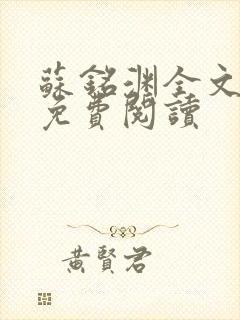 蘇銘淵全文
免費閱讀
黃賢君